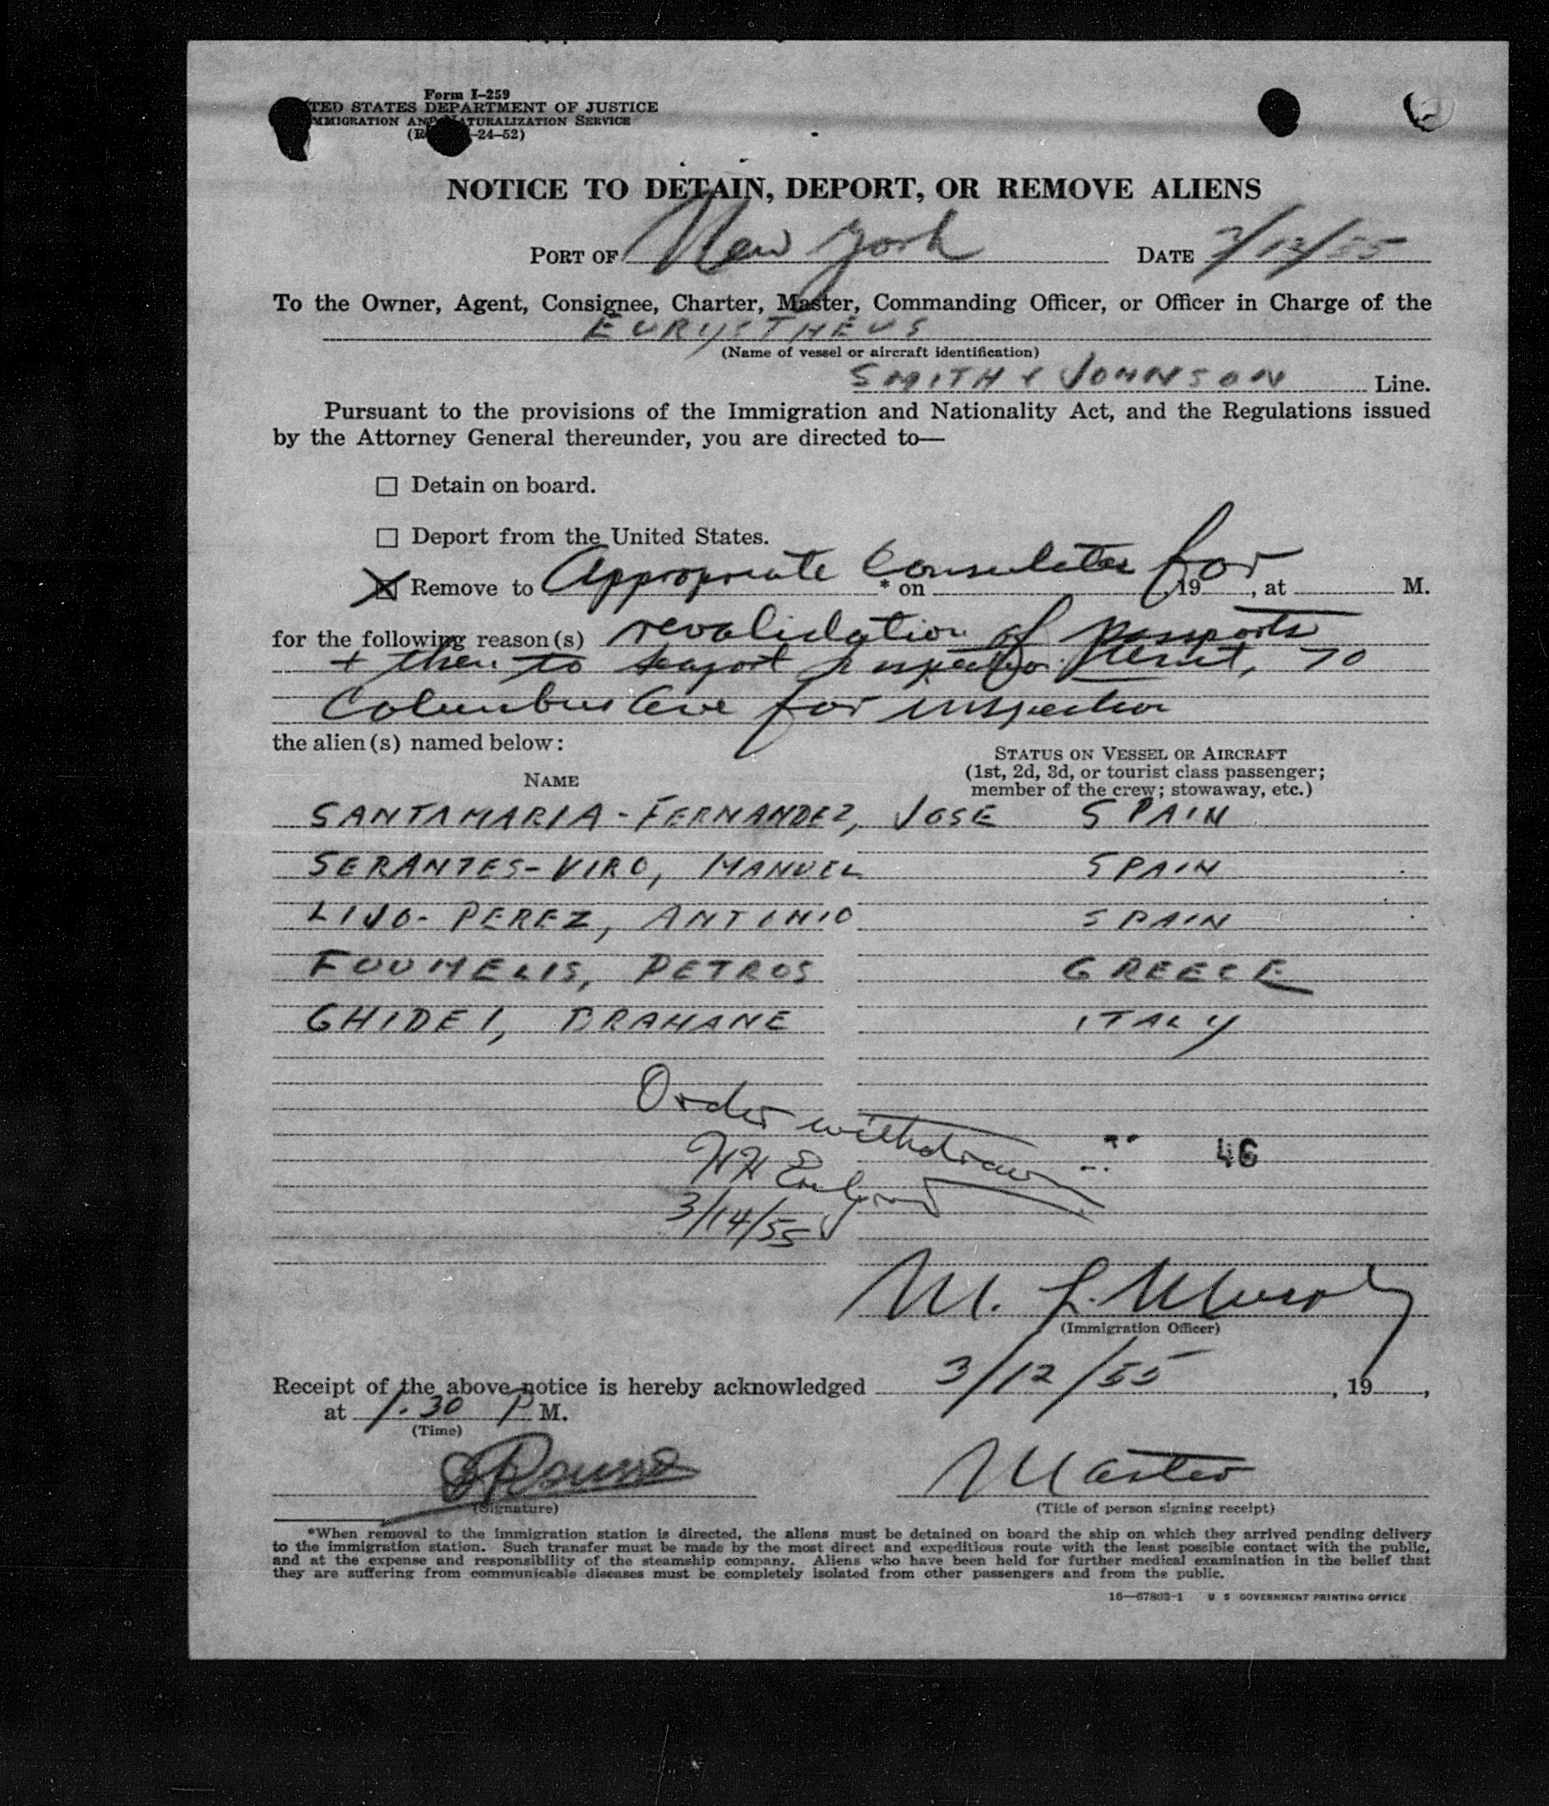 Form I-259
TED STATES DEPARTMENT OF JUSTICE
MMIGRATION AND NATURALIZATION SERVICE
-24-52)
NOTICE TO DETAIN, DEPORT, OR REMOVE ALIENS
PORT OF New York DATE 3/12/55
To the Owner, Agent, Consignee, Charter, Master, Commanding Officer, or Officer in Charge of the
EURYSTHEUS
(Name of vessel or aircraft identification)
SMITH & JOHNSON Line.
Pursuant to the provisions of the Immigration and Nationality Act, and the Regulations issued
by the Attorney General thereunder, you are directed to—
☐ Detain on board.
☐ Deport from the United States.
☒ Remove to Appropriate Consulates for * on , 19 , at M.
for the following reason(s) revalidation of passports
+ then to seaport inspection 70
Columbus Ave for inspection
the alien(s) named below:
STATUS ON VESSEL OR AIRCRAFT
NAME (1st, 2d, 3d, or tourist class passenger;
member of the crew; stowaway, etc.)
SANTAMARIA-FERNANDEZ, JOSE SPAIN
SERANTES-VIRO, MANUEL SPAIN
LIJO-PEREZ, ANTONIO SPAIN
FOUMELIS, PETROS GREECE
GHIDEI, BRAHANE ITALY
Order withdrawn
46
3/14/55
M. L. Murphy
(Immigration Officer)
Receipt of the above notice is hereby acknowledged 3/12/55 , 19 ,
at 1.30 P M.
(Time)
Master
(Signature) (Title of person signing receipt)
*When removal to the immigration station is directed, the aliens must be detained on board the ship on which they arrived pending delivery
to the immigration station. Such transfer must be made by the most direct and expeditious route with the least possible contact with the public,
and at the expense and responsibility of the steamship company. Aliens who have been held for further medical examination in the belief that
they are suffering from communicable diseases must be completely isolated from other passengers and from the public.
16—67803-1 U S GOVERNMENT PRINTING OFFICE